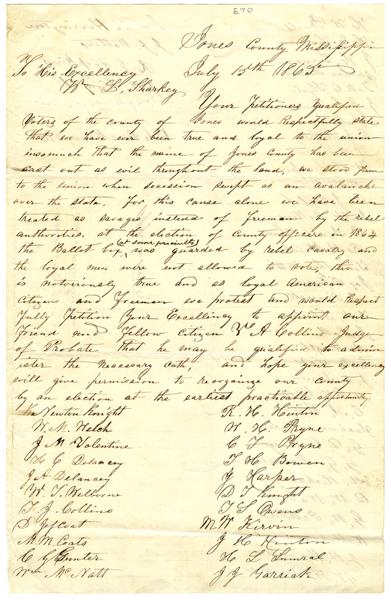 270
Jones County Mississippi
July 15th 1865
To His Excellency
Wm L. Sharkey
Your Petitioners Qualified
Voters of the county of Jones would Respectfully state
that we have ever been true and loyal to the union
insomuch that the name of Jones County has been
cast out as evil throughout the land, we stood firm
to the union when secession swept as an avalanche
over the state. For this cause alone we have been
treated as savages instead of Freemen by the rebel
authorities. at the election of County officers in 1864
the Ballot box, (at some precincts) was guarded by rebel cavalry and
the loyal men were not allowed to vote, this
is notoriously true and as loyal American
Citizens and Freemen we protest and would respect
fully Petition Your Excellency to appoint our
Friend and Fellow Citizen A Collins Judge
of Probate that he may be qualified to admin
ister the necessary oath, and hope your excellency
will give permission to reorganize our county
by an election at the earliest practicable opportunity
Newton Knight
W. M. Welch
J M Valentine
H C Delancy
J A Delancey
W. T. Welborne
T. J. Collins
D Jef Coat
M. M. Coats
C G Gunter
Wm McNatt
R. H. Hinton
W. H. Pryne
C F Pryne
T H Bowen
J Harper
D T Knight
T L Owens
M W Kirvin
J H Hinton
H L Sumral
J J Garrick